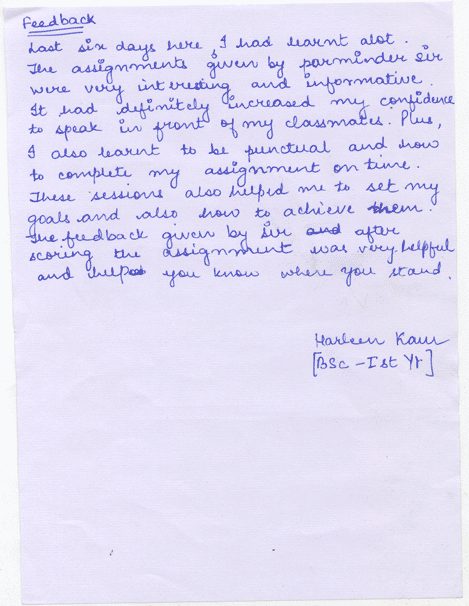 Feedback
Last six days here, I had learnt alot.
The assignments given by parminder sir
were very interesting and informative.
It had definitely increased my confidence
to speak in front of my classmates. Plus,
I also learnt to be punctual and how
to complete my assignment on time.
These sessions also helped me to set my
goals and also how to achieve them.
The feedback given by sir and after
scoring the assignment was very helpful
and help you know where you stand.
Harleen Kaur
[BSc - Ist Yr]